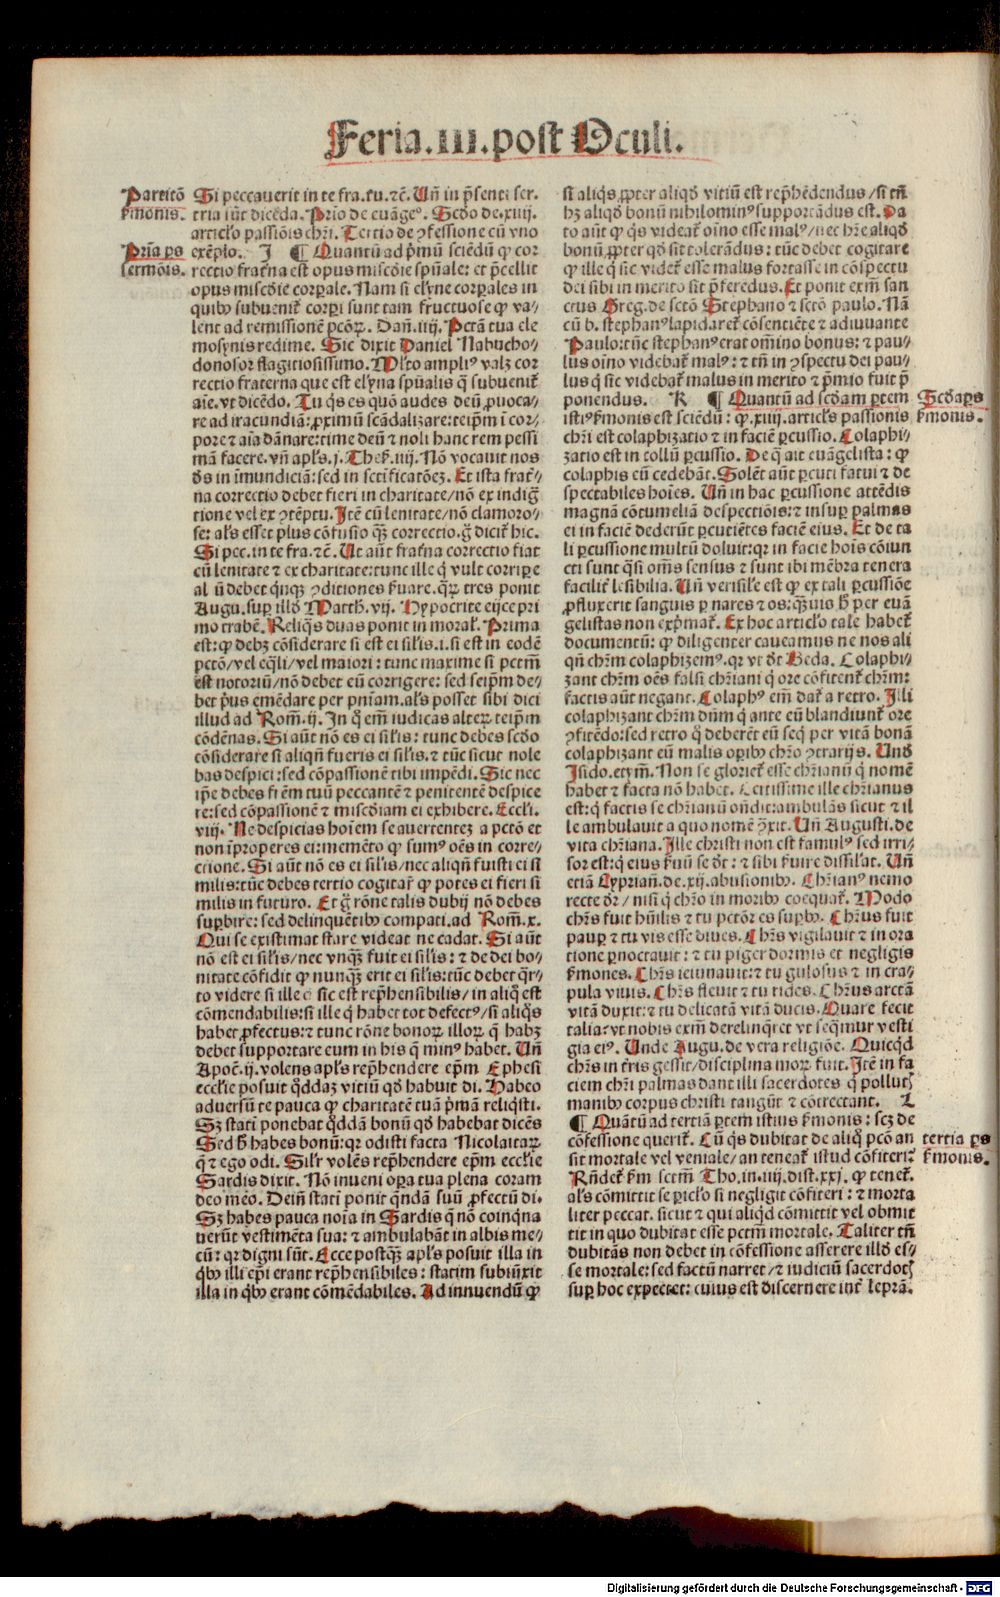 Feria.III.post Oculi.
Partitō
s̄monis.
Prīa ps
sermōis.
Si peccauerit in te fra.tu.⁊c̄. Un̄ in p̄senti ser⸗
tria sūt dicēda. Prīo de euāgeº. Scdo de.xiiij.
articľo passiōis chr̄i. Tertio de ꝯfessione cū vno
exēplo. I ¶ Quantū ad p̄mū sciēdū ꝙ cor
rectio frat̄na est opus misc̄die spūale: et p̄cellit
opus misc̄die corꝑale. Nam si elyne corꝑales in
quibꝰ subuenit̄ corꝑi sunt tam fructuose ꝙ va⸗
lent ad remissionē pc̄oꝝ. Dan̄.iiij. Pctā tua ele
mosynis redime. Sic dixit Daniel Nabucho⸗
donosor flagitiosissimo. Ml̄to ampliꝰ valꝫ cor
rectio fraterna que est elyna spūalis q̄ subuenit̄
aīe. vt dicēdo. Tu q̄s es quō audes deū ꝓuoca⸗
re ad iracundiā: ꝓximū scādalizare: teip̄m ī cor⸗
pore ⁊ aīa dānare: time deū ⁊ noli hanc rem pessi
mā facere. vn̄ apľs.j. Thes̄.iiij. Nō vocauit nos
ds̄ in īmundiciā: sed in sct̄ificatōeꝫ. Et ista frat̄⸗
na correctio debet fieri in charitate/nō ex indiḡ
tione vel ex ꝯtēptu. Itē cū lenitate/nō clamoro⸗
se: alſs esset plus cōfusio qꝫ correctio. g̊ dicit̄ hic.
Si pec.in te fra.⁊c̄. Ut aūt frat̄na correctio fiat
cū lenitate ⁊ ex charitate: tunc ille q̄ vult corriꝑe
al ū debet q̄nqꝫ ꝯditiones s̄uare. q̄ꝝ tres ponit
Augu.suꝑ illd̄ Matth.vij. Hypocrite eijce pri
mo trabē. Reliq̄s duas ponit in moral̄. Prima
est: ꝙ debꝫ cōsiderare si est ei siľis.i.si est in eodē
pctō/vel eq̄li/vel maiori: tunc maxime si pctm̄
est notoriū/nō debet eū corrigere: sed seip̄m de⸗
bet p̄us emēdare per pniam. alſs posset sibi dici
illud ad Rom̄.ij. In q̊ em̄ iudicas alteꝝ teip̄m
cōdēnas. Si aūt nō es ei siľis: tunc debes scdo
cōsiderare si aliqn̄ fueris ei siľis. ⁊ tūc sicut nole
bas despici: sed cōpassionē tibi impēdi. Sic nec
ip̄e debes fr̄em tuū peccantē ⁊ penitentē despice
re: sed cōpassionē ⁊ misc̄diam ei exhibere. Eccli.
viij. Ne despicias hoīem se auertenteꝫ a pctō et
non īproperes ei: memēto ꝙ sumꝰ oēs in corre⸗
ctione. Si aūt nō es ei siľis/nec aliqn̄ fuisti ei si
milis: tūc debes tertio cogitar̄ ꝙ potes ei fieri si
milis in futuro. Et g̊ rōne talis dubij nō debes
suꝑbire: sed delinquētibꝰ compati. ad Rom̄.x.
Qui se existimat stare videat ne cadat. Si aūt
nō est ei siľis/nec vnqꝫ fuit ei siľis: ⁊ de dei bo⸗
nitate cōfidit ꝙ nunqꝫ erit ei siľis: tūc debet q̄r⸗
to videre si ille q̄ sic est rep̄hensibilis/ in aliq̊ est
cōmendabilis: si ille q̄ habet tot defectꝰ/si aliq̄s
habet ꝓfectus: ⁊ tunc rōne bonoꝝ illoꝝ q̄ habꝫ
debet supportare eum in his q̄ minꝰ habet. Un̄
Apoc̄.ij. volens apľs rep̄hendere ep̄m Ephesi
eccľie posuit q̊ddaꝫ vitiū qd̄ habuit di. Habeo
aduersū te pauca ꝙ charitatē tuā p̄mā reliq̄sti.
Sꝫ statī ponebat q̊ddā bonū qd̄ habebat dicēs
Sed h̄ habes bonū: qꝛ odisti facta Nicolaitaꝝ
q̄ ⁊ ego odi. Siľr volēs rep̄hendere ep̄m eccľie
Sardis dixit. Nō inueni oꝑa tua plena coram
deo meo. Dein̄ statī ponit q̄ndā suū ꝓfectū di.
Sꝫ habes pauca noīa in Sardis q̄ nō coinq̄na
uerūt vestimēta sua: ⁊ ambulabāt in albis me⸗
cū: qꝛ digni sūt. Ecce postqꝫ apľs posuit illa in
q̄bꝰ illi ep̄i erant rep̄hensibiles: statim subiūxit
illa in q̄bꝰ erant cōmēdabiles. Ad innuendū ꝙ
si aliq̄s ꝓpter aliqd̄ vitiū est rep̄hēdendus/si tn̄
hꝫ aliqd̄ bonū nihilominꝰ supportādus est. Da
to aūt ꝙ q̄s videat̄ oīno esse malꝰ/nec hr̄e aliqd̄
bonū ꝓpter qd̄ sit tolerādus: tūc debet cogitare
ꝙ ille q̄ sic videt̄ esse malus fortasse in cōspectu
dei sibi in merito sit p̄feredus. Et ponit exm̄ san
ctus Greg.de sctō Stephano ⁊ sctō paulo. Nā
cū b. stephanꝰ lapidaret̄ cōsentiēte ⁊ adiuuante
Paulo: tūc stephanꝰ erat om̄ino bonus: ⁊ pau⸗
lus oīno videbat̄ malꝰ: ⁊ tn̄ in ꝯspectu dei pau⸗
lus q̄ sic videbat̄ malus in merito ⁊ p̄mio fuit p̄
ponendus. K ¶ Quantū ad scd̄am ꝑtem
isti⁹ s̄monis est sciendū: ꝙ.xiiij.articľs passionis
chr̄i est colaphizatio ⁊ in faciē ꝑcussio. Colaphi⸗
zatio est in collū ꝑcussio. De q̄ ait euāgelista: ꝙ
colaphis eū cedebāt. Solēt aūt ꝑcuti fatui ⁊ de
spectabiles hoīes. Un̄ in hac ꝑcussione attēdis
magnā cōtumeliā despectiōis: ⁊ insuꝑ palmas
ei in faciē dederūt ꝑcutiētes faciē eius. Et de ta
li ꝑcussione multū doluit: qꝛ in facie hoīs cōiun
cti sunt q̄si om̄s sensus ⁊ sunt ibi mēbra tenera
facilit̄ lesibilia. Un̄ verisiľe est ꝙ ex tali ꝑcussiōe
ꝓfluxerit sanguis ꝑ nares ⁊ os: qꝫuis h̄ per euā
gelistas non exp̄mat̄. Ex hoc articľo tale habet̄
documentū: ꝙ diligenter caueamus ne nos ali
qn̄ chr̄m colaphizemꝰ. qꝛ vt dt̄ Beda. Colaphi⸗
zant chr̄m oēs falsi chr̄iani q̄ ore cōfitent̄ chr̄m:
factis aūt negant. Colaphꝰ em̄ dat̄ a retro. Illi
colaphizant chr̄m dn̄m q̄ ante eū blandiunt̄ ore
ꝯfitēdo: sed retro q̊ deberēt eū seq̄ per vitā bonā
colaphizant eū malis oꝑibꝰ chr̄o ꝯtrarijs. Und̄
Isido.etym̄. Non se gloriet̄ esse chr̄ianū q̄ nomē
habet ⁊ facta nō habet. Certissime ille chr̄ianus
est: q̄ factis se chr̄ianū on̄dit: ambulās sicut ⁊ il
le ambulauit a quo nomē ꝯxit. Un̄ Augusti.de
vita chr̄iana. Ille christi non est famulꝰ sed irri⸗
sor est: q̄ eius s̄uū se dt̄: ⁊ sibi s̄uire dissilat. Un̄
etiā Cyprian̄.de.xij.abusionibꝰ. Chr̄ianꝰ nemo
recte dr̄/ nisi q̄ chr̄o in moribꝰ coequat̄. Modo
chr̄s fuit hūilis ⁊ tu pctōr es suꝑbꝰ. Chr̄us fuit
pauꝑ ⁊ tu vis esse diues. Chr̄s vigilauit ⁊ in ora
tione ꝑnoctauit: ⁊ tu piger dormis et negligis
s̄mones. Chr̄s ieiunauit: ⁊ tu gulosus ⁊ in cra⸗
pula viuis. Chr̄s fleuit ⁊ tu rides. Chr̄us arctā
vitā duxit: ⁊ tu delicatā vitā ducis. Quare fecit
talia: vt nobis exm̄ derelinq̄ret vt seq̄mur vesti
gia eiꝰ. Unde Augu.de vera religiōe. Quicq̄d
chr̄s in t̄ris gessit/disciplina moꝝ fuit. Itē in fa
ciem chr̄i palmas dant illi sacerdotes q̄ pollut̄
manibꝰ corpus christi tangūt ⁊ cōtrectant. L
¶ Quātū ad tertiā ꝑtem istius s̄monis: scꝫ de
cōfessione querit̄. Cū q̄s dubitat de aliq̊ pcō an
sit mortale vel veniale/an teneat̄ istud cōfiteri:
Rn̄det̄ s̄m sctm̄ Tho.in.iiij.dist.xxj. ꝙ tenet̄.
alſs cōmittit se ꝑicľo si negligit cōfiteri: ⁊ morta
liter peccat. sicut ⁊ qui aliq̄d cōmittit vel obmit
tit in quo dubitat esse pctm̄ mortale. Taliter tn̄
dubitās non debet in cōfessione asserere illd̄ es⸗
se mortale: sed factū narret/⁊ iudiciū sacerdot̄
suꝑ hoc expectet: cuius est discernere int̄ leprā.
Scd̄a ps
s̄monis.
tertia ps
s̄monis.
Digitalisierung gefördert durch die Deutsche Forschungsgemeinschaft - DFG